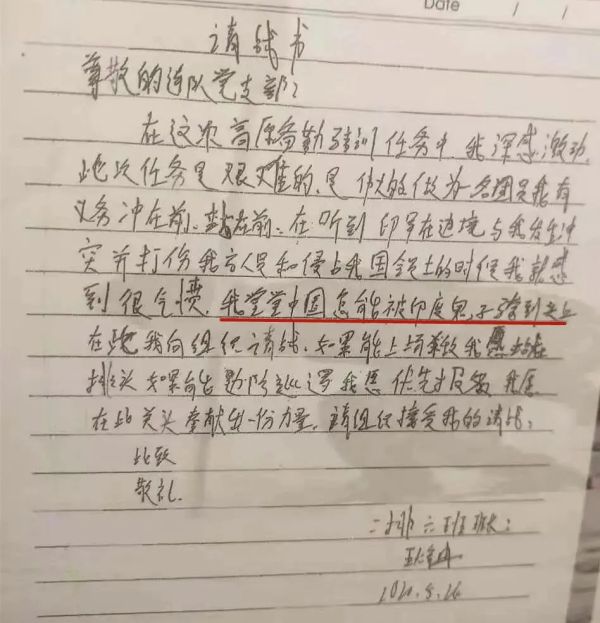 Date / /
请战书
尊敬的连队党支部:
在这次高原备勤驻训任务中,我深感激动,
此次任务是艰难的,是伟大的做为一名团员我有
义务冲在前、站在前、在听到印军在边境与我发生冲
突并打伤我方人员和侵占我国领土的时候我就感
到很气愤,我堂堂中国怎能被印度鬼子骑到头上
在此我向组织请战,如果能上场杀敌我愿站在
排头如果能参加阶巡逻我愿优先报名 我愿
在此关头奉献出一份力量,请组织接受我的请战。
此致
敬礼
二排六班班长:
2020.5.26